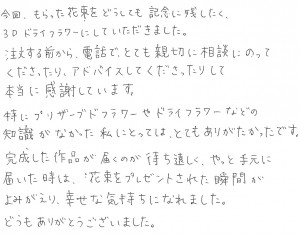 今回、もらった花束をどうしても記念に残したく、
3Dドライフラワーにしていただきました。
注文する前から、電話で、とても親切に相談にのって
くださったり、アドバイスしてくださったりして
本当に感謝しています。
特にプリザーブドフラワーやドライフラワーなどの
知識がなかった私にとっては、とてもありがたかったです。
完成した作品が届くのが待ち遠しく、やっと手元に
届いた時は、花束をプレゼントされた瞬間が
よみがえり、幸せな気持ちになれました。
どうもありがとうございました。